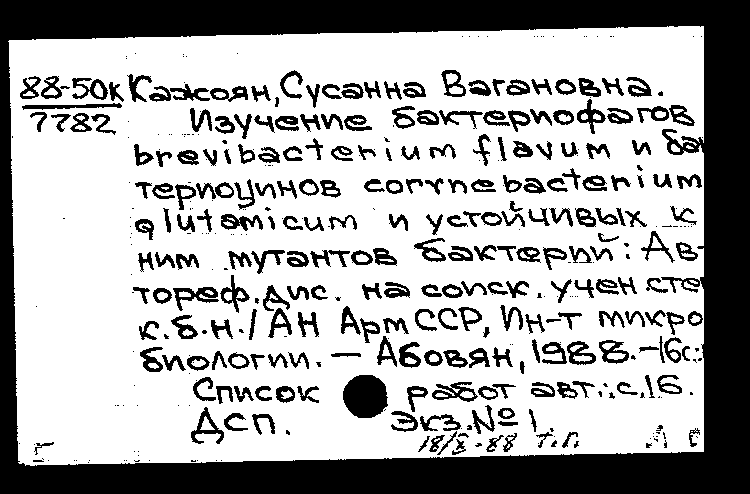 88-50к Кажоян, Сусанна Вагановна.
7782 Изучение бактериофагов
brevibacterium flavum и бак
териоцинов corynebacterium
glutamicum и устойчивых к
ним мутантов бактерий: Ав-
тореф. дис. на соиск. учен. сте
к.б.н. / АН АрмССР, Ин-т микро
биологии. — Абовян, 1988. – 16с.:
Список работ авт.: с.16.
ДСП. Экз. № 1.
18/X-88 т.п.